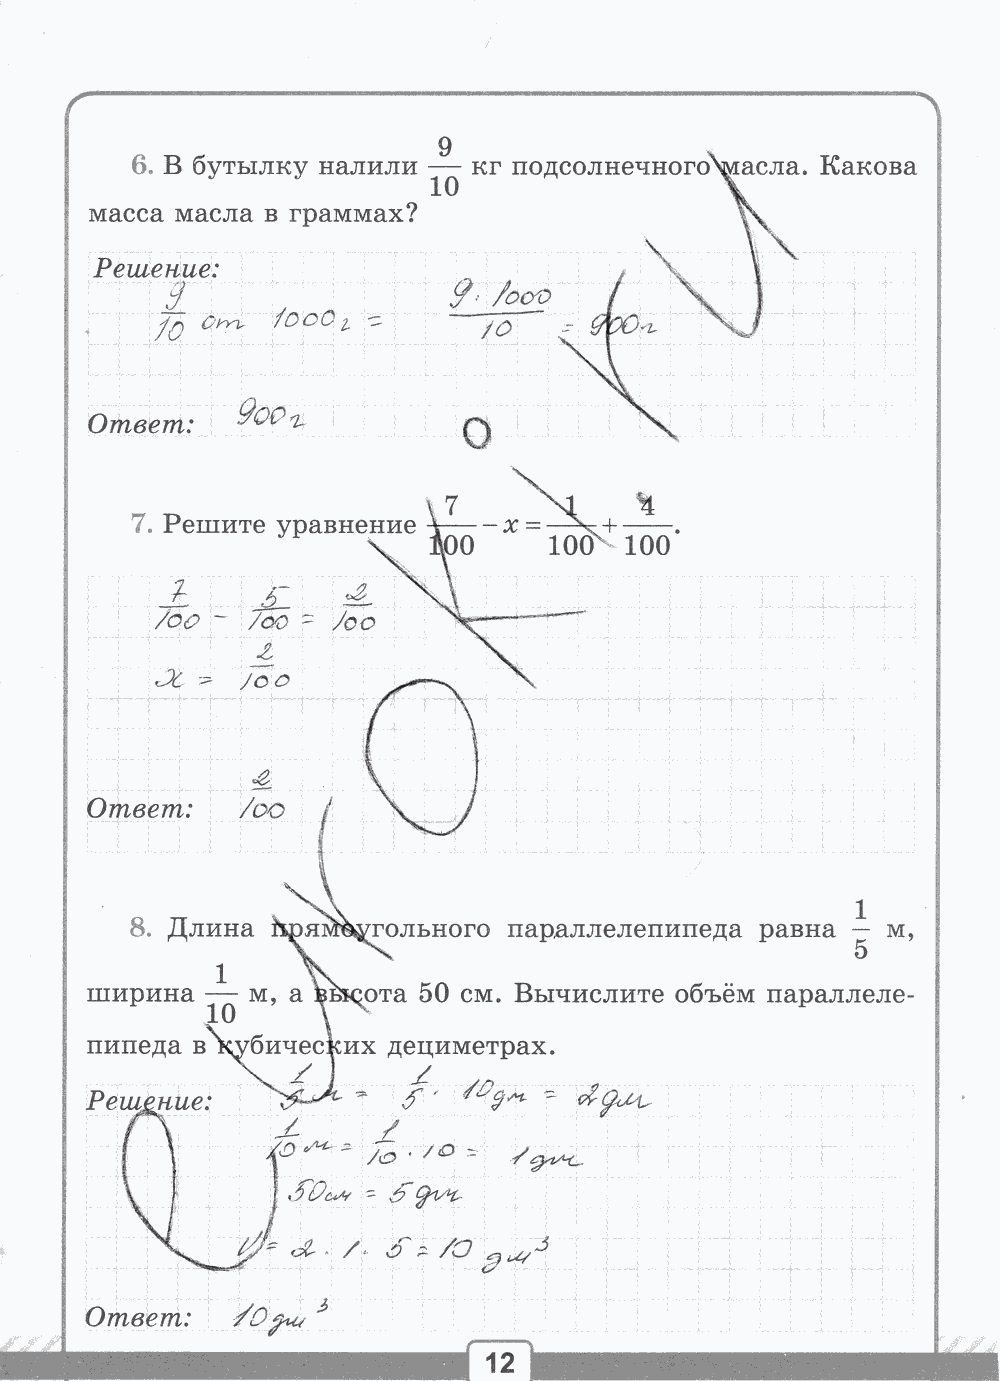 6. В бутылку налили 9/10 кг подсолнечного масла. Какова
масса масла в граммах?
Решение:
9/10 от 1000г = 9·1000/10 = 900г
Ответ: 900г
7. Решите уравнение 7/100 − x = 1/100 + 4/100.
7/100 − 5/100 = 2/100
x = 2/100
Ответ: 2/100
8. Длина прямоугольного параллелепипеда равна 1/5 м,
ширина 1/10 м, а высота 50 см. Вычислите объём параллеле-
пипеда в кубических дециметрах.
Решение: 1/5 м = 1/5 · 10дм = 2дм
1/10 м = 1/10 · 10 = 1дм
50см = 5дм
V = 2 · 1 · 5 = 10 дм³
Ответ: 10дм³
12